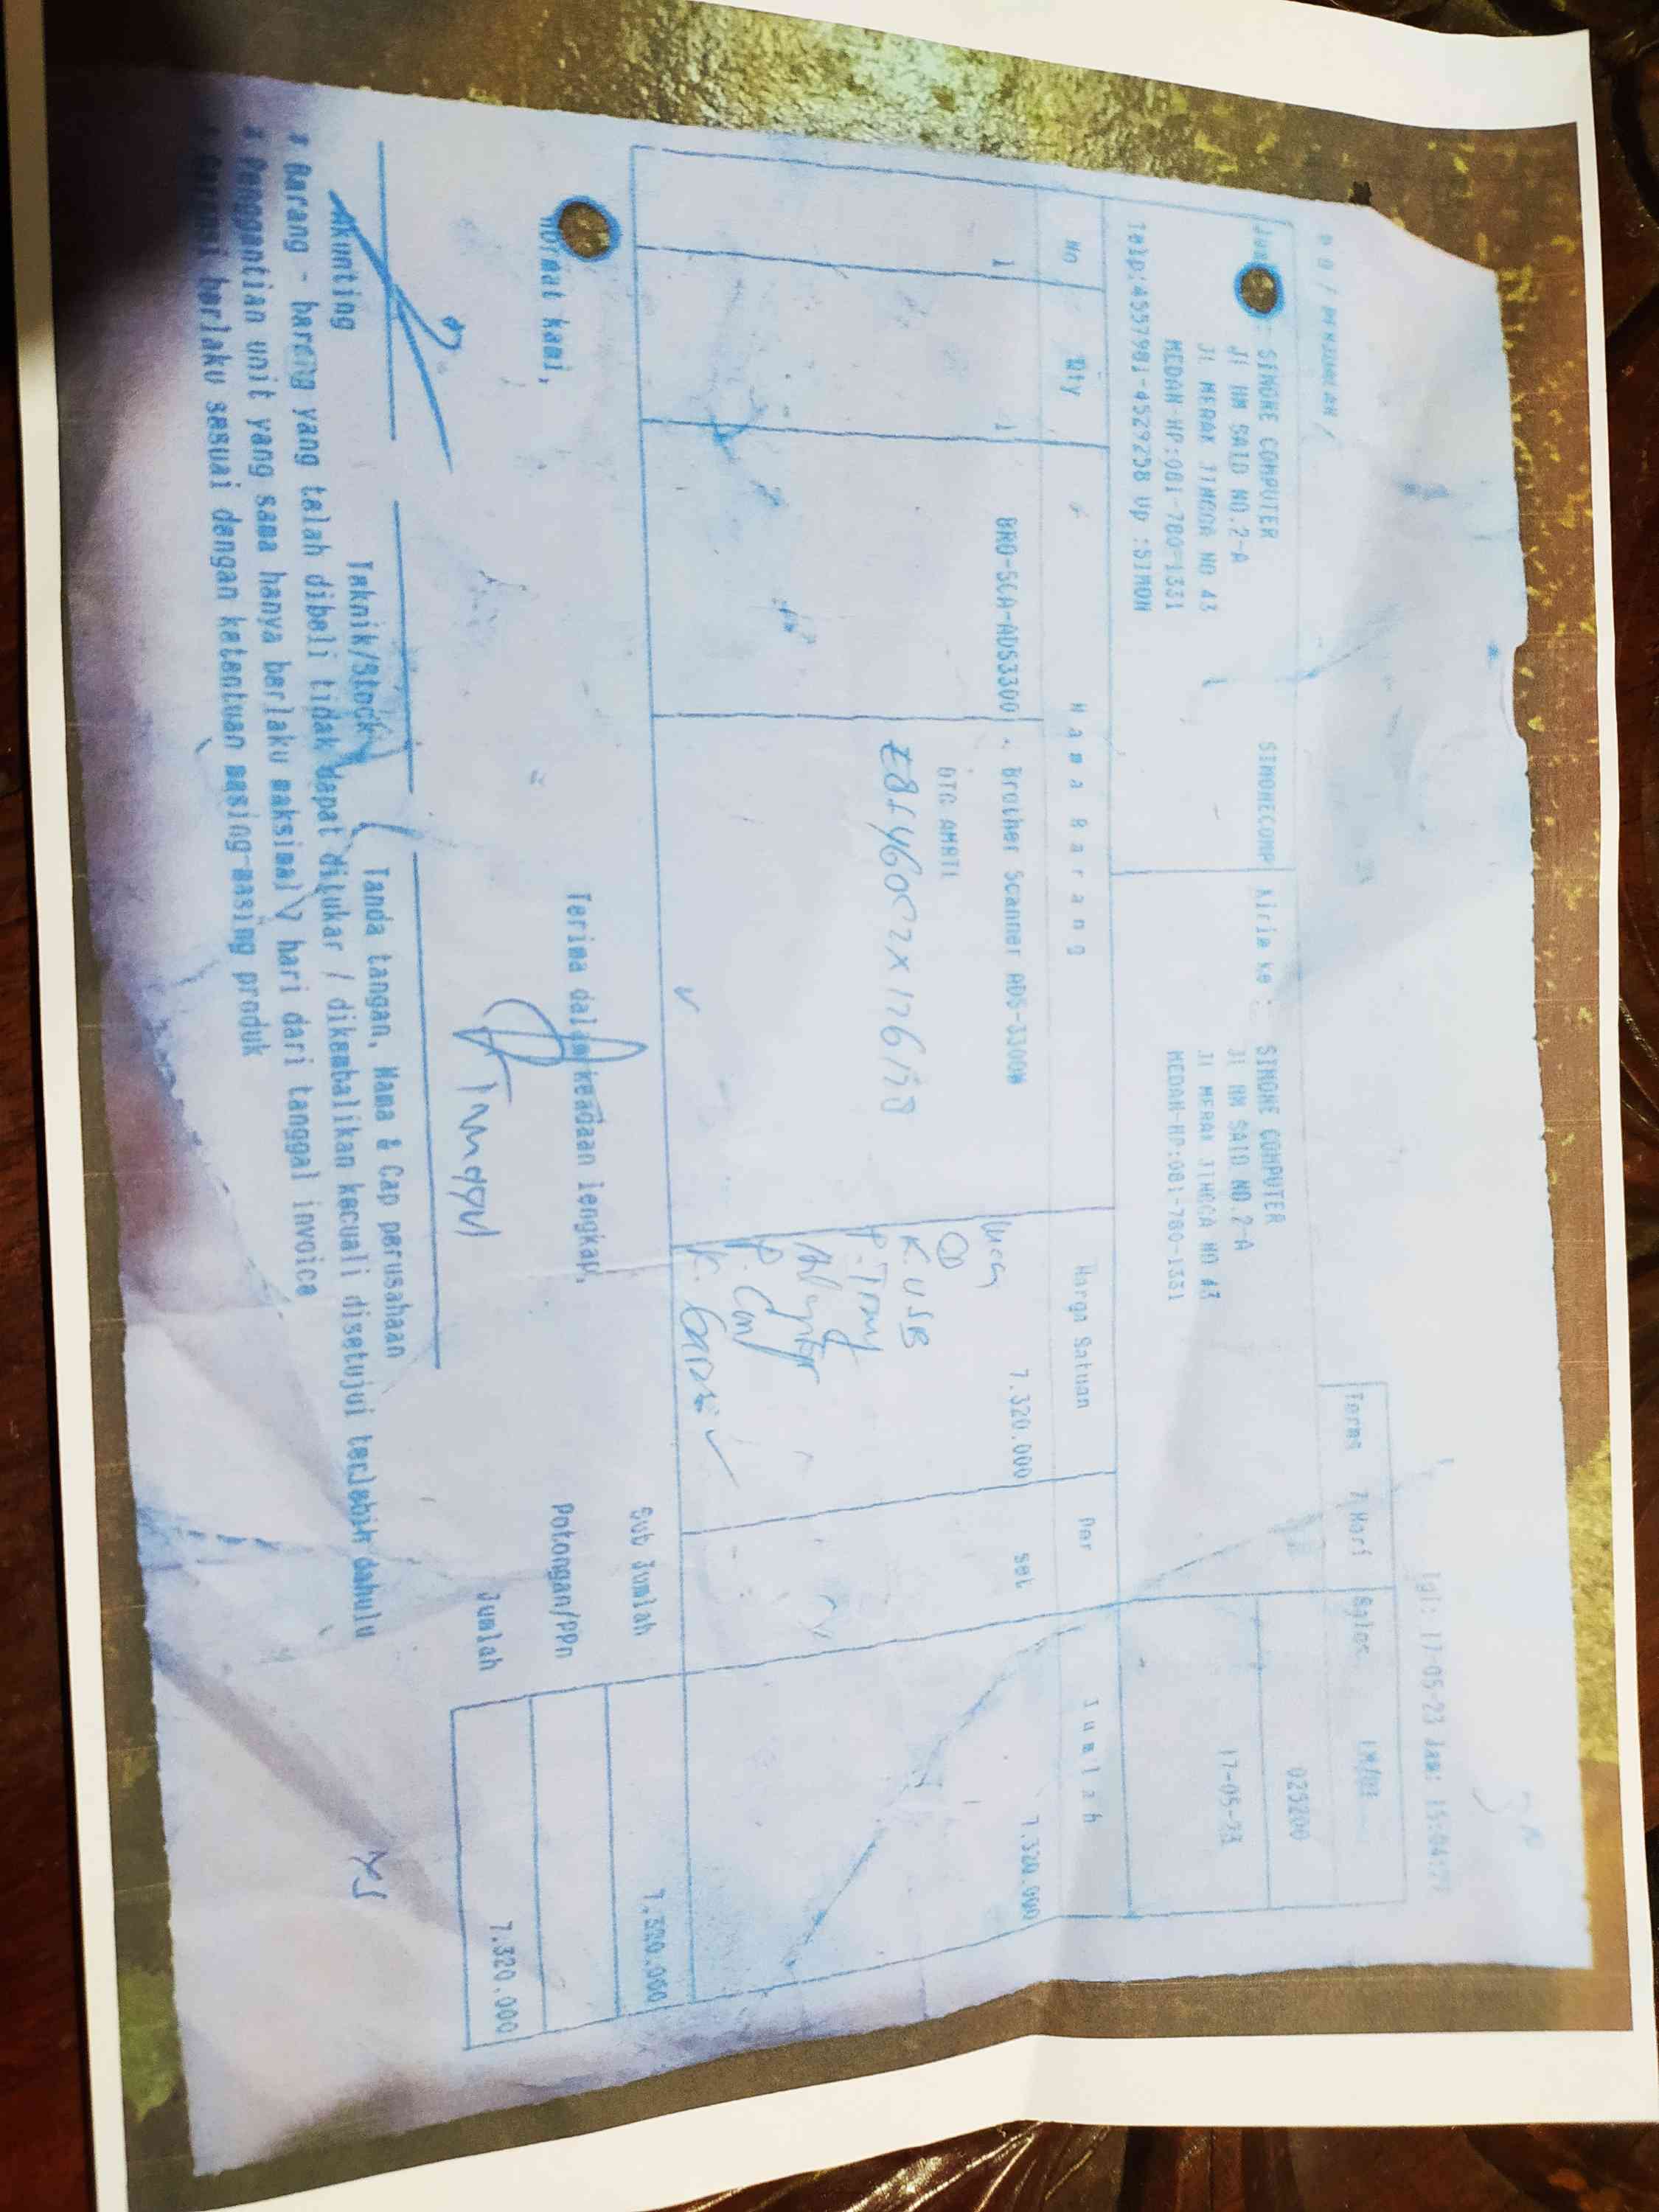 Tgl: 17-05-23 Jam: 15:04:
DO / PENJUALAN /
Terms 7 Hari Sales
SIMONE COMPUTER SIMONECOMP Kirim ke : SIMONE COMPUTER 025200
Jl HM SAID NO.2-A Jl HM SAID NO.2-A
Jl MERAK JINGGA NO 43 Jl MERAK JINGGA NO 43 17-05-23
MEDAN-HP:081-780-1331 MEDAN-HP:081-780-1331
Telp:4557981-4529258 Up :SIMON
No Qty Nama Barang Harga Satuan Per Jumlah
1 1 BRO-SCA-ADS3300 Brother Scanner ADS-3300W 7.320.000 set 7.320.000
CD
K. USB
Adaptor
K. Garansi
Sub Jumlah 7.320.000
Hormat kami, Terima dalam keadaan lengkap, Potongan/PPn
Jumlah 7.320.000
Akunting Teknik/Stock Tanda tangan, Nama & Cap perusahaan
* Barang - barang yang telah dibeli tidak dapat ditukar / dikembalikan kecuali disetujui terlebih dahulu
* Penggantian unit yang sama hanya berlaku maksimal 7 hari dari tanggal invoice
* Garansi berlaku sesuai dengan ketentuan masing-masing produk